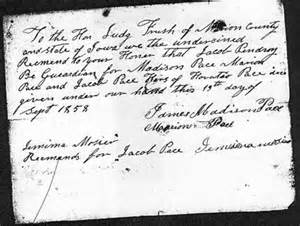 To the Hon Judg Frush of Marion County
and state of Iowa we the undersined
Recmend to your Honor that Jacob Pendroy
Be Guardian for Madison Pace Marion
Pace and Jacob Pace Heirs of Horatio Pace dec
given under our hand this 13th day of
Sept 1858
James Madison Pace
Marion Pace
Jemima Mosier
Recmends for Jacob Pace Jemima mosier